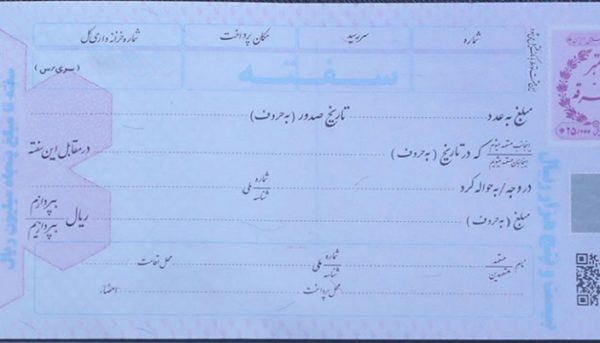 شماره سررسید مکان پرداخت شماره خزانه داری کل
(سری/س)
سفته
مبلغ به عدد تاریخ صدور (به حروف)
اینجانب متعهد میشوم
اینجانبان متعهد میشویم
که در تاریخ (به حروف) در مقابل این سفته
در وجه/به حواله کرد شماره ملی شناسه
مبلغ (به حروف) ریال بپردازم بپردازیم
نام متعهد متعهدین شماره ملی شناسه محل اقامت
محل پرداخت امضاء:
سفته تا مبلغ پنجاه میلیون ریال
بیست و پنج هزار ریال
۲۵/۰۰۰